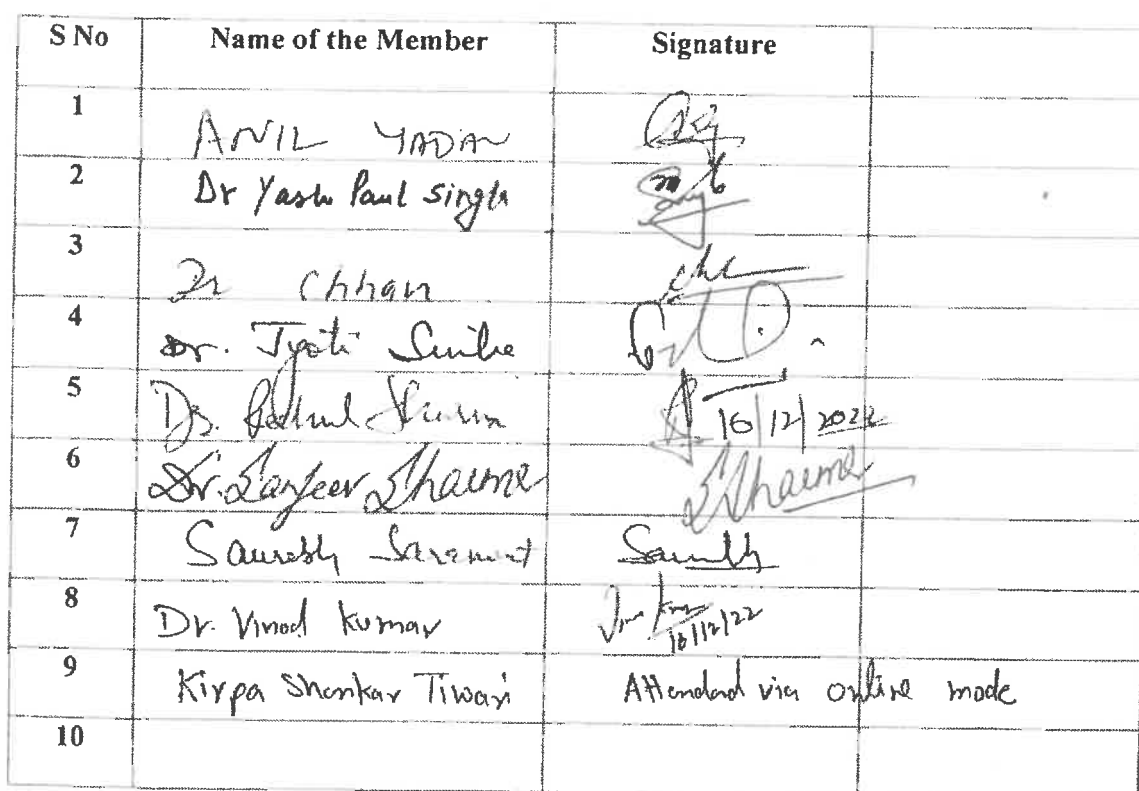 S No Name of the Member Signature
1 ANIL YADAV
2 Dr Yash Paul Singh
3 Dr Chhan
4 Dr. Jyoti Sinha
5 Dr. Rahul 16/12/2022
6 Dr. Sanjeev Sharma SSharma
7 Saurabh Saurabh
8 Dr. Vinod Kumar 16/12/22
9 Kirpa Shankar Tiwari Attended via online mode
10